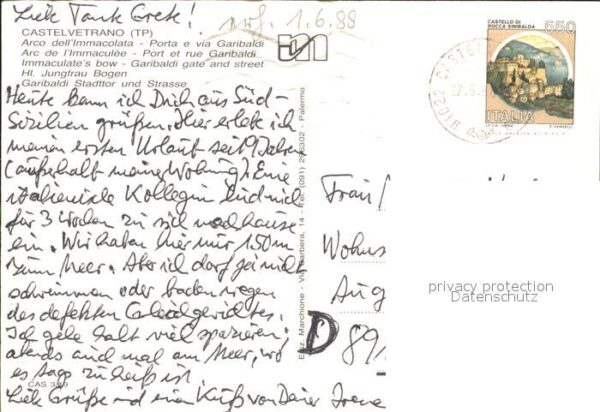 Liebe Tante Grete!
erh. 1.6.88
CASTELVETRANO (TP)
Arco dell'Immacolata - Porta e via Garibaldi
Arc de l'Immaculée - Port et rue Garibaldi
Immaculate's bow - Garibaldi gate and street
Hl. Jungfrau Bogen
Garibaldi Stadttor und Strasse
Heute kann ich Dich aus Süd-
Sizilien grüßen. Hier erlebe ich
meinen ersten Urlaub seit 9 Jahren
(außerhalb meiner Wohnung). Eine
italienische Kollegin lud mich
für 3 Wochen zu sich nachhause
ein. Wir haben hier nur 150 m
zum Meer. Aber ich darf ja nicht
schwimmen oder baden wegen
des defekten
Ich gehe halt viel spazieren,
abends auch mal am Meer, wo
es tags zu heiß ist
Liebe Grüße und einen Kuß von Deiner Irene
CAS 3/
Ediz. Marchione - Via Barbera, 14 - Tel. (091) 296302 - Palermo
CASTELLO DI
ROCCA SINIBALDA
550
ITALIA
Frau
Wohns
Aug
D 89
privacy protection
Datenschutz